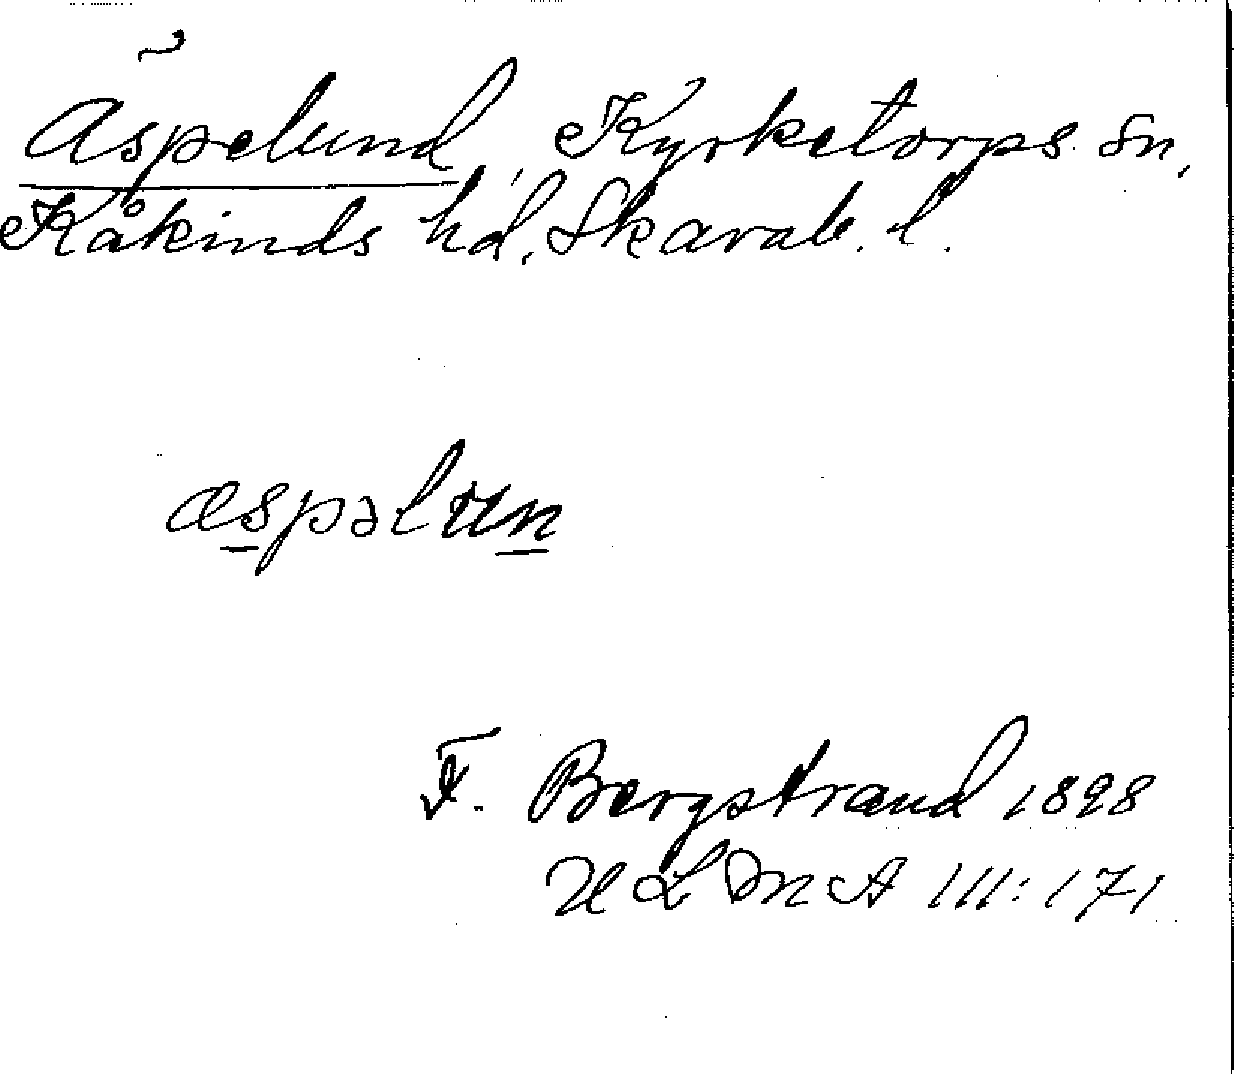 Äspelund, Kyrketorps sn,
Kåkinds hd, Skarab. l.
æspəlun
F. Bergstrand 1898
ULMA 111:171